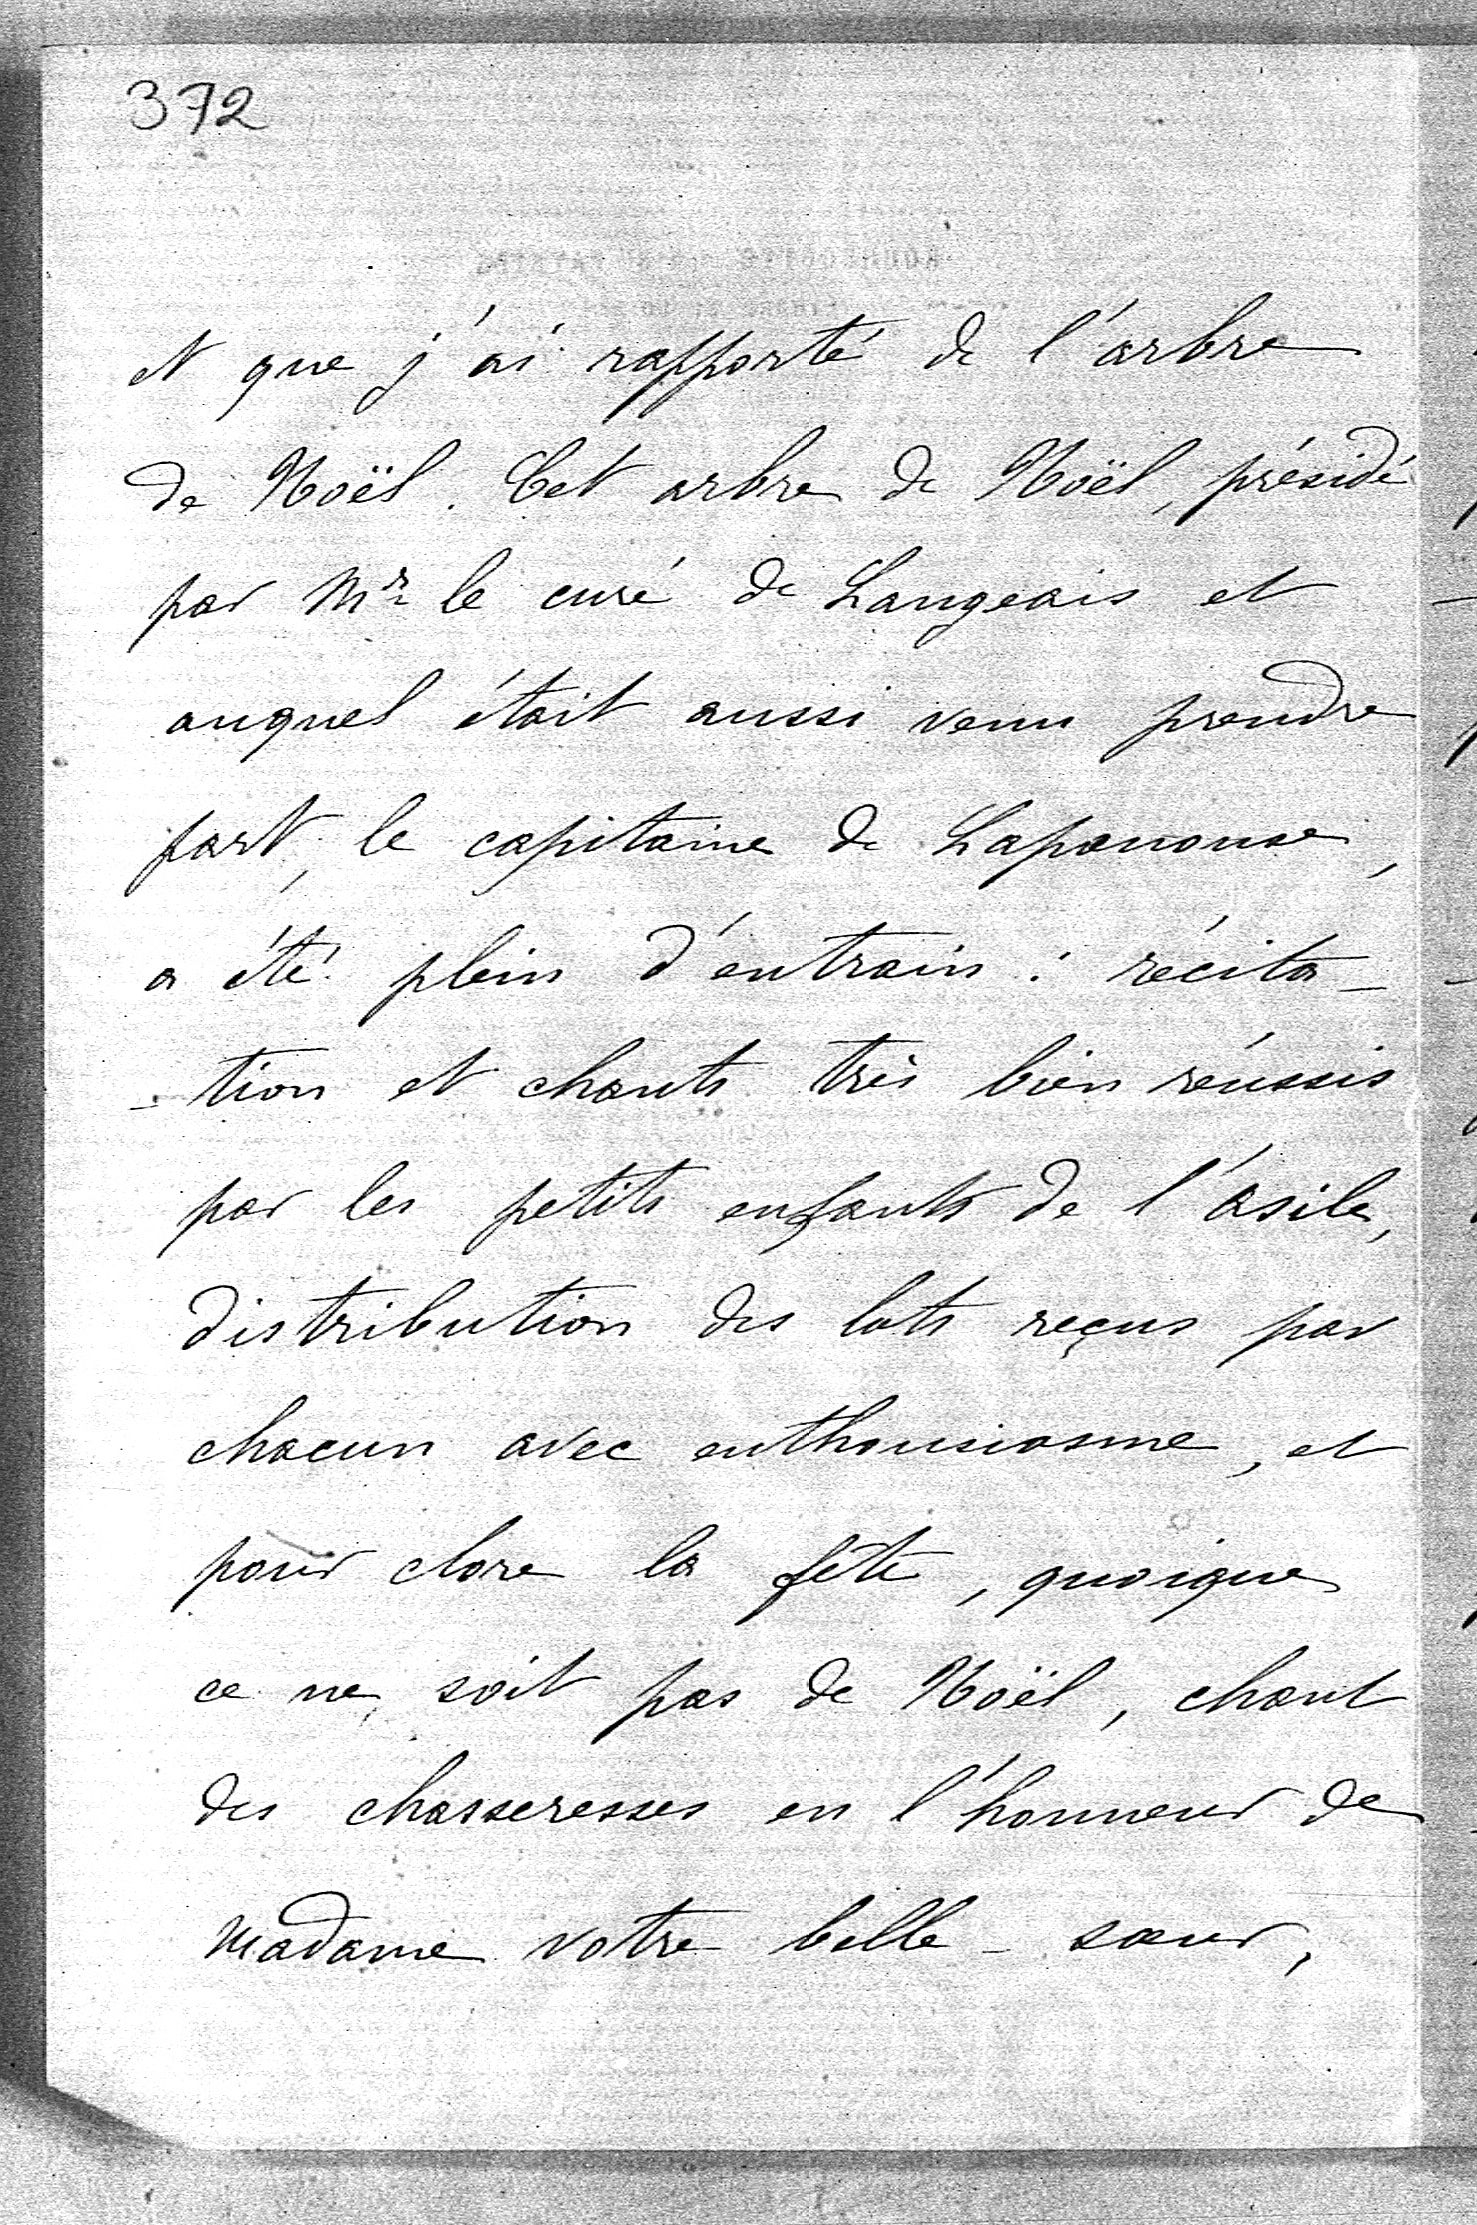 372
et que j'ai rapporté de l'arbre
de Noël. Cet arbre de Noël, présidé
par Mr le curé de Langeais et
auquel était aussi venu prendre
part, le capitaine de Lapanouse,
a été plein d'entrain : récita-
-tion et chants très bien réussis
par les petits enfants de l'asile,
distribution des lots reçus par
chacun avec enthousiasme, et
pour clore la fête, quoique
ce ne soit pas de Noël, chant
des chasseresses en l'honneur de
Madame votre belle-sœur,